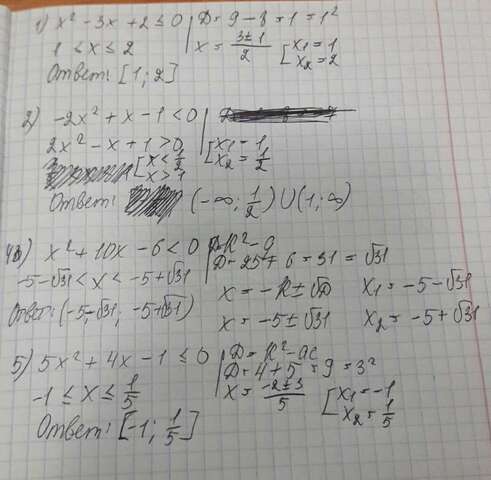 1) x² - 3x + 2 ≤ 0 | D = 9 - 8 = 1 = 1²
1 ≤ x ≤ 2 | x = (3 ± 1)/2 [x₁ = 1 x₂ = 2
Ответ: [1; 2]
2) -2x² + x - 1 < 0
2x² - x + 1 > 0 [x₁ = 1 x₂ = 1/2
[x < 1/2 x > 1
Ответ: (-∞; 1/2) ∪ (1; ∞)
x² + 10x - 6 < 0 | D = k² - a
-5 - √31 < x < -5 + √31 | D = 25 + 6 = 31 = √31
Ответ: (-5 - √31; -5 + √31) x = -k ± √D x₁ = -5 - √31
x = -5 ± √31 x₂ = -5 + √31
5) 5x² + 4x - 1 ≤ 0 | D = k² - ac
D = 4 + 5 = 9 = 3²
-1 ≤ x ≤ 1/5 | x = (-2 ± 3)/5 [x₁ = -1 x₂ = 1/5
Ответ: [-1; 1/5]